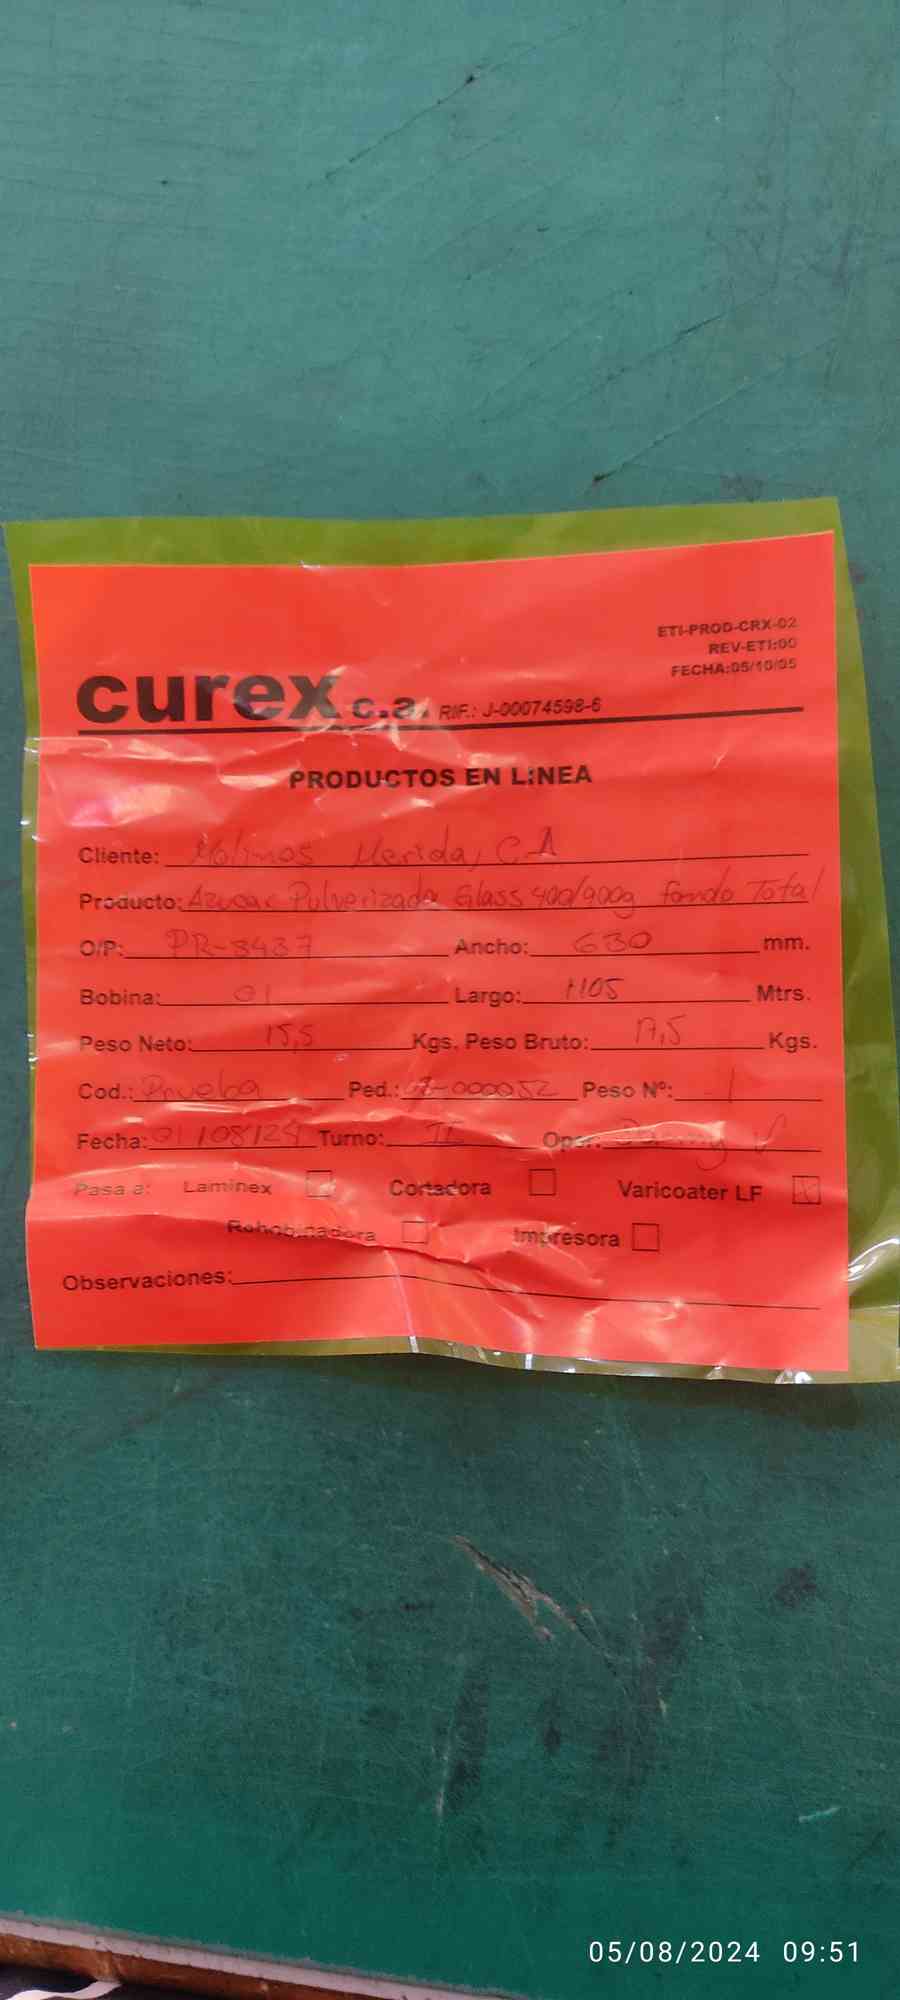 ETI-PROD-CRX-02
REV-ETI:00
FECHA:05/10/05
curex c.a. RIF.: J-00074598-6
PRODUCTOS EN LINEA
Cliente: Molinos Merida, C.A
Producto: Azucar Pulverizada Glass 400/900g fondo Total
O/P: PR-8437 Ancho: 630 mm.
Bobina: 01 Largo: 1105 Mtrs.
Peso Neto: 15,5 Kgs. Peso Bruto: 17,5 Kgs.
Cod.: Prueba Ped.: Peso Nº: 1
Fecha: 01/08/24 Turno: II Oper:
Pasa a: Laminex Cortadora Varicoater LF
Rohobinadora Impresora
Observaciones:
05/08/2024 09:51